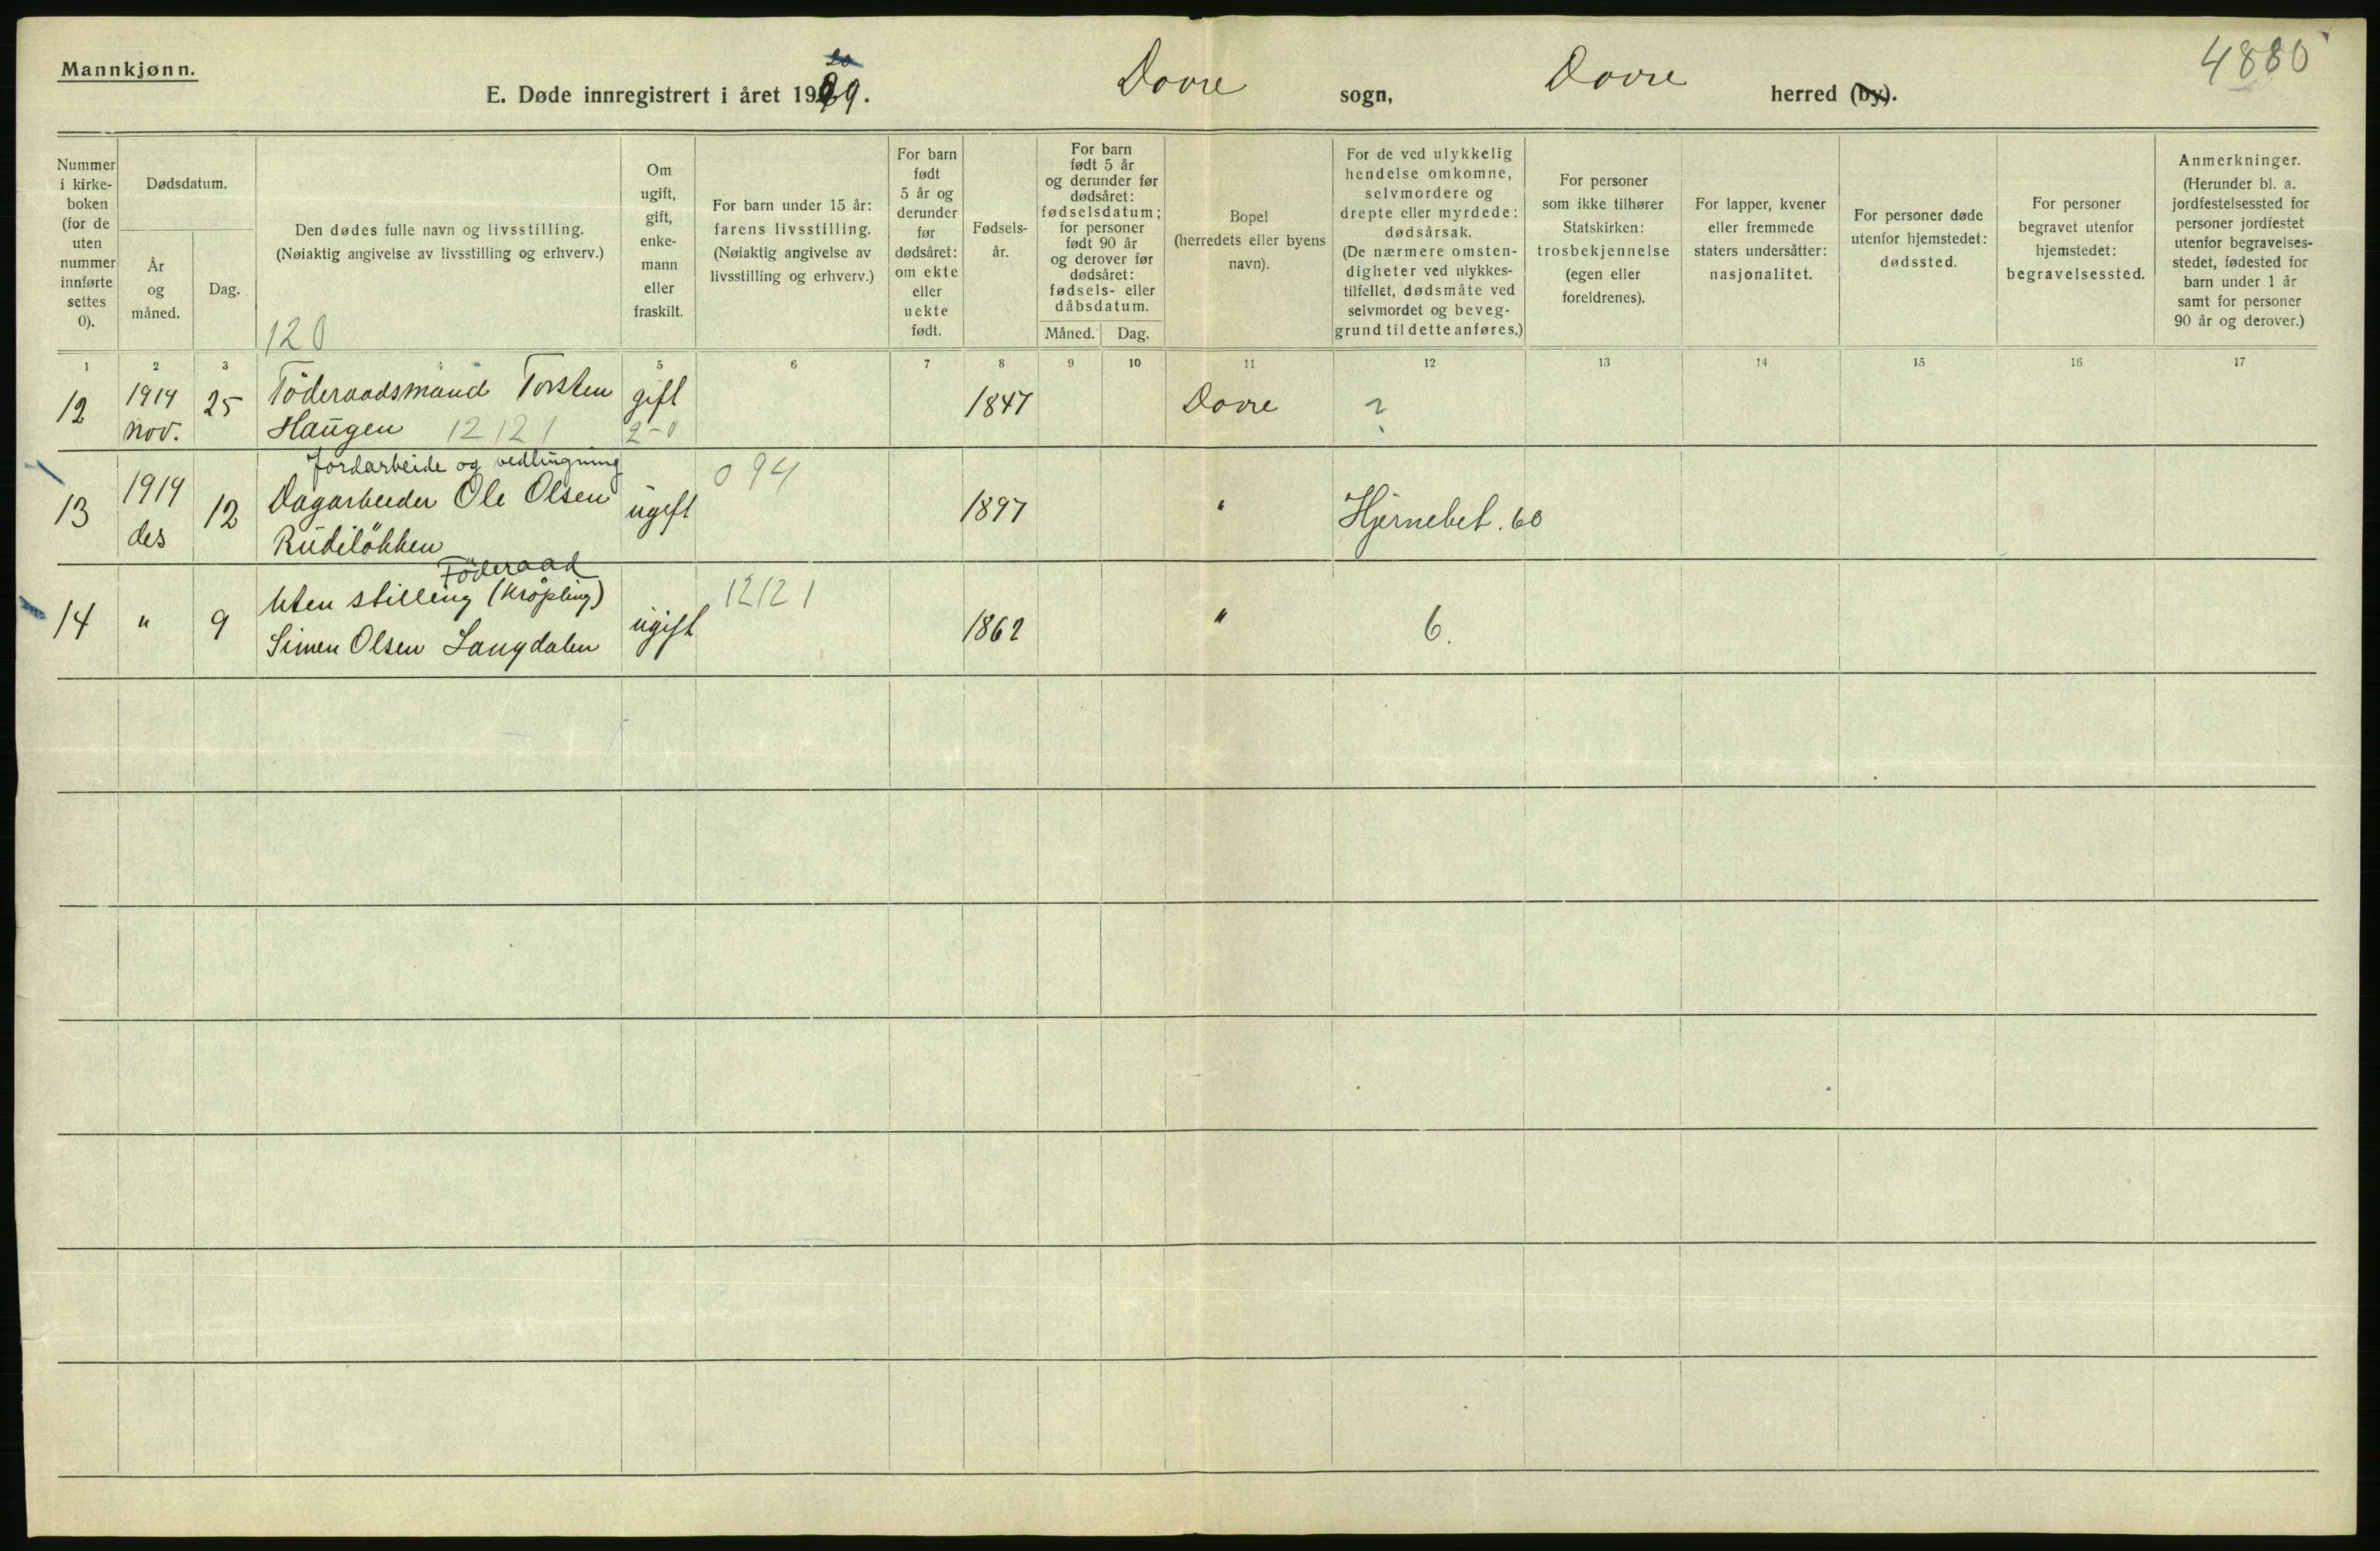 Mannkjønn.
E. Døde innregistrert i året 1919. Dovre sogn, Dovre herred (by).
20
4880
Nummer i kirke- boken (for de uten nummer innførte settes 0).
Dødsdatum.
År og måned.
Dag.
Den dødes fulle navn og livsstilling.
(Nøiaktig angivelse av livsstilling og erhverv.)
120
Om ugift, gift, enke- mann eller fraskilt.
For barn under 15 år: farens livsstilling.
(Nøiaktig angivelse av livsstilling og erhverv.)
For barn født 5 år og derunder før dødsåret: om ekte eller uekte født.
Fødsels- år.
For barn født 5 år og derunder før dødsåret: fødselsdatum; for personer født 90 år og derover før dødsåret: fødsels- eller dåbsdatum.
Måned. Dag.
Bopel (herredets eller byens navn).
For de ved ulykkelig hendelse omkomne, selvmordere og drepte eller myrdede: dødsårsak.
(De nærmere omsten- digheter ved ulykkes- tilfellet, dødsmåte ved selvmordet og beveg- grund til dette anføres.)
For personer som ikke tilhører Statskirken: trosbekjennelse (egen eller foreldrenes).
For lapper, kvener eller fremmede staters undersåtter: nasjonalitet.
For personer døde utenfor hjemstedet: dødssted.
For personer begravet utenfor hjemstedet: begravelsessted.
Anmerkninger.
(Herunder bl. a. jordfestelsessted for personer jordfestet utenfor begravelses- stedet, fødested for barn under 1 år samt for personer 90 år og derover.)
1 2 3 4 5 6 7 8 9 10 11 12 13 14 15 16 17
12 1919 nov. 25 Föderaadsmand Torsten Haugen 12121 gift 2-0 1847 Dovre ?
Jordarbeide og vedhugning
13 1919 des 12 Dagarbeider Ole Olsen Rudiløkken ugift 094 1897 " Hjernebet. 60
Föderaad
14 " 9 Uten stilling (Krøpling) Simen Olsen Langdalen ugift 12121 1862 " 6.